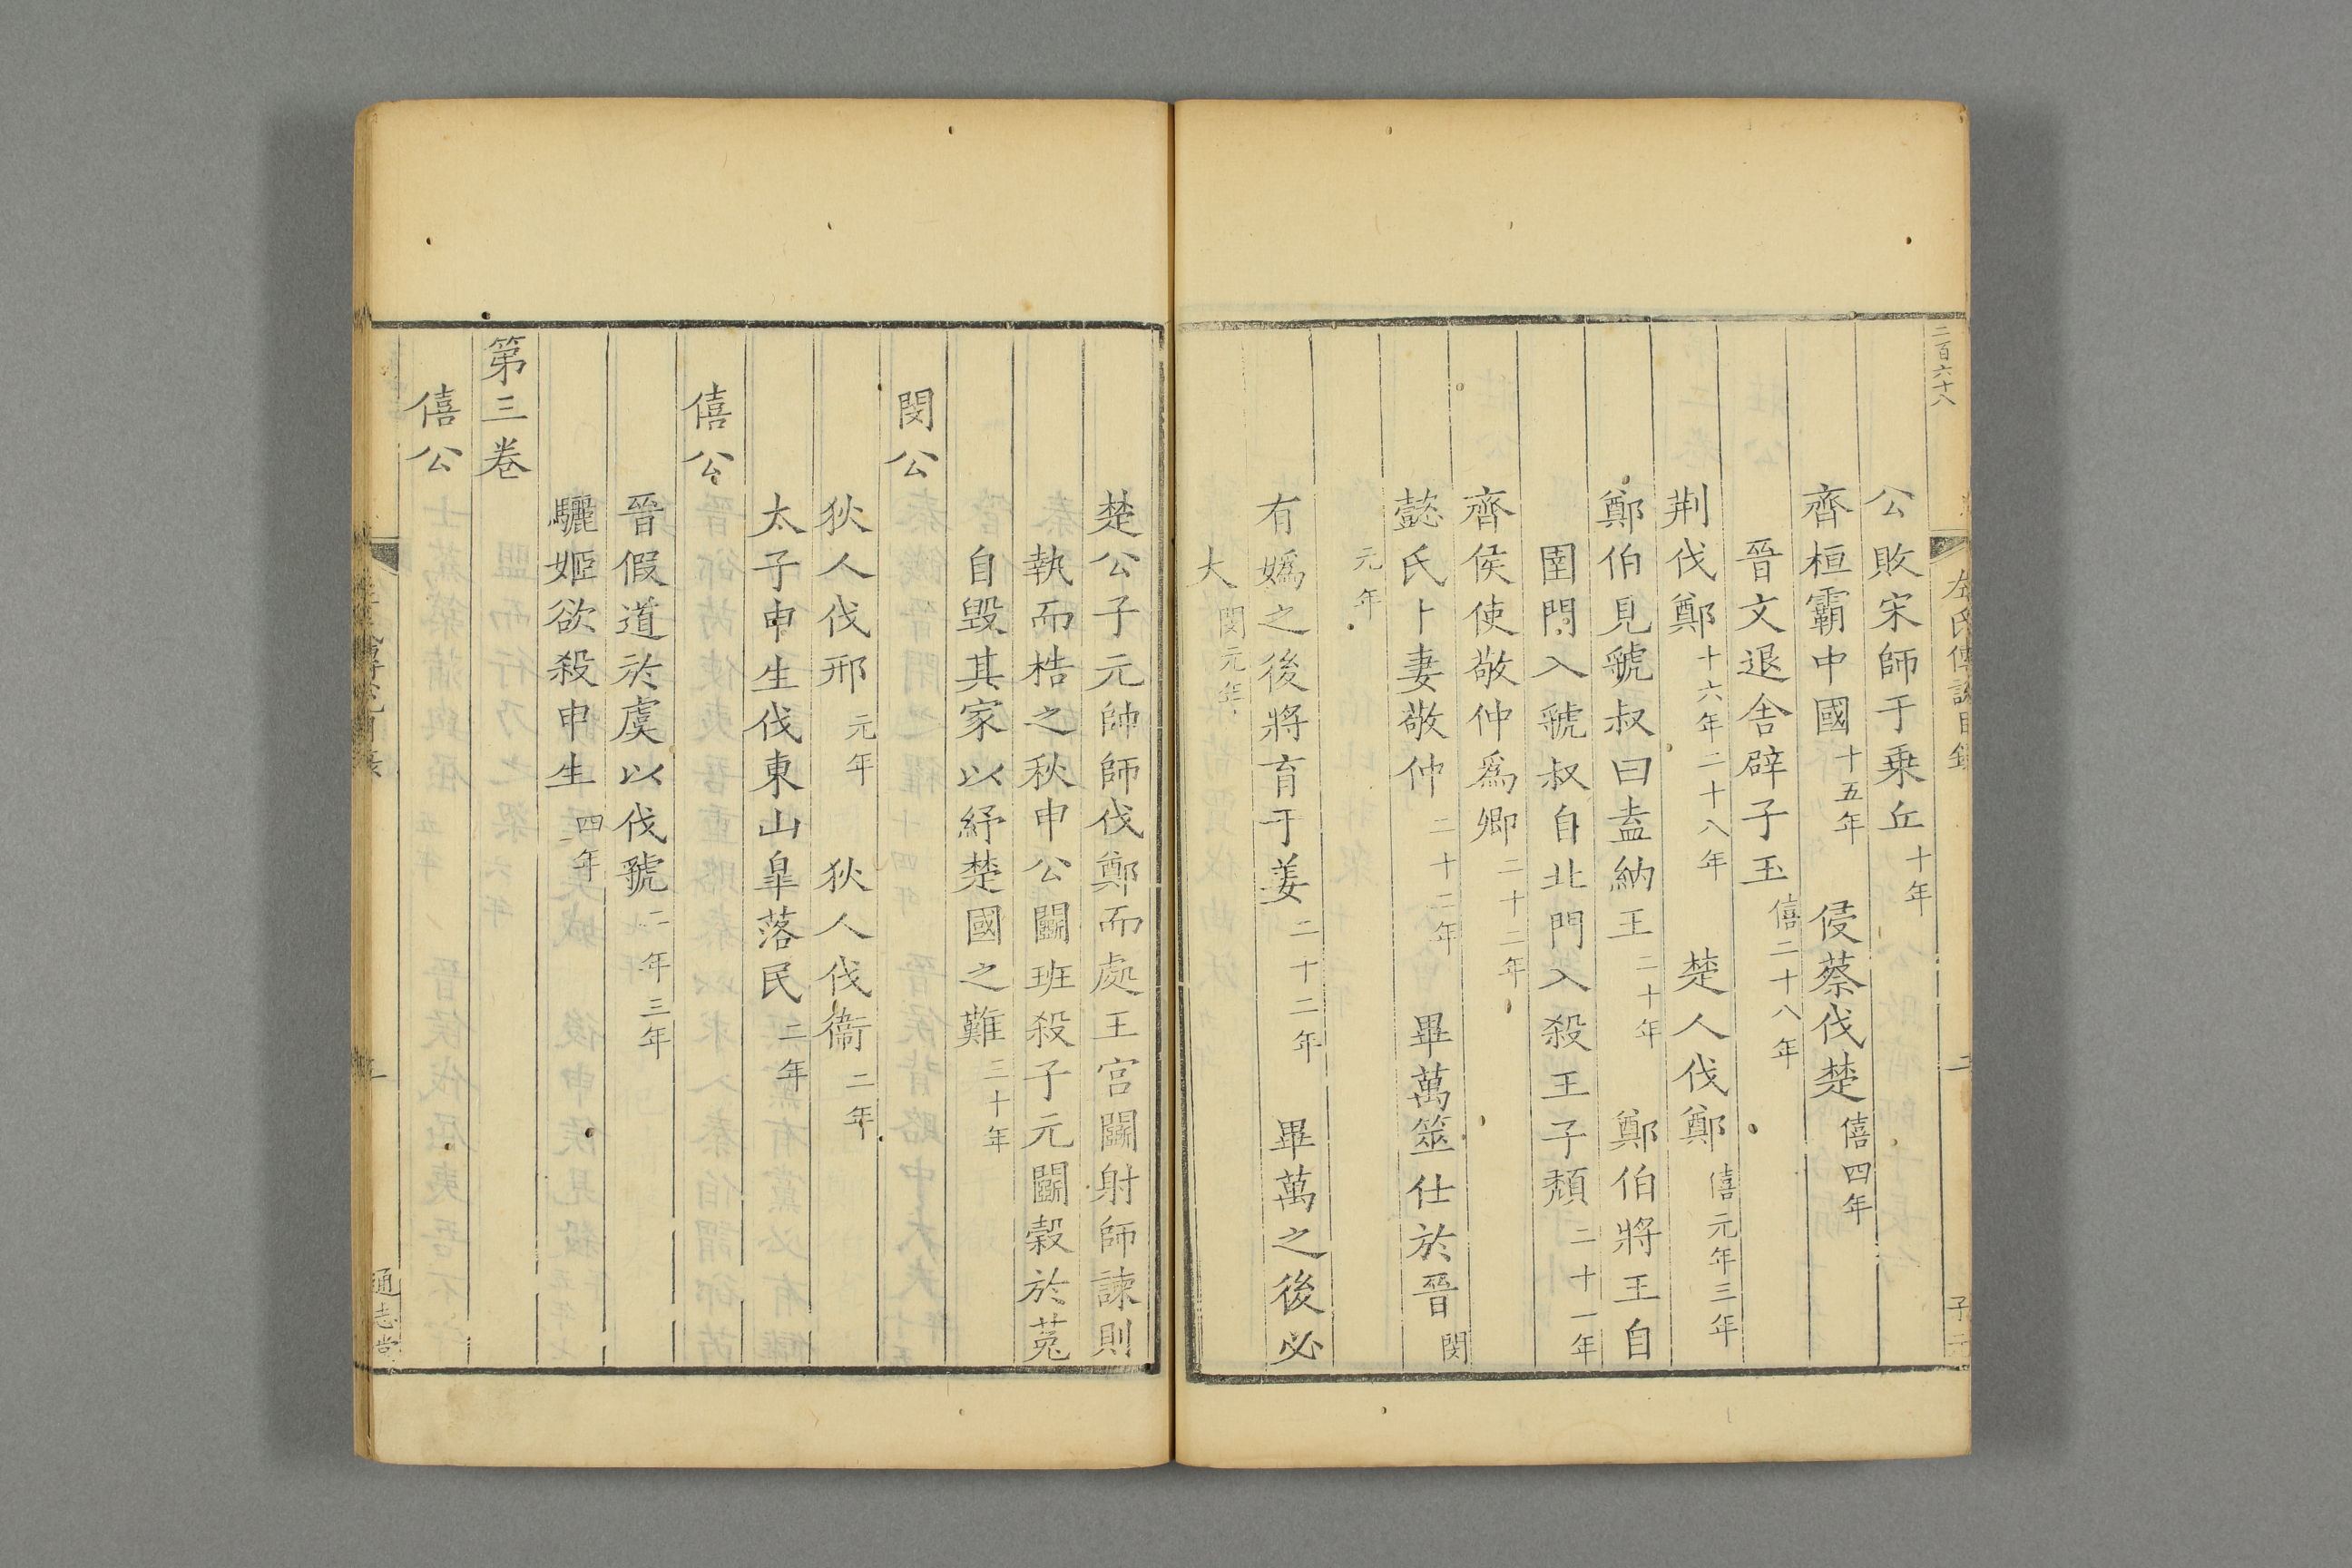 二百六十八
左氏傳說目錄
二
公敗宋師于乗丘十年
齊桓霸中國十五年 侵蔡伐楚僖四年
晉文退舍辟子玉僖二十八年
荆伐鄭十六年二十八年 楚人伐鄭僖元年三年
鄭伯見虢叔曰盍納王二十年 鄭伯將王自
圉門入虢叔自北門入殺王子頽二十一年
齊侯使敬仲爲卿二十二年
懿氏卜妻敬仲二十二年 畢萬筮仕於晉閔
元年
有嬀之後將育于姜二十二年 畢萬之後必
大閔元年
楚公子元帥師伐鄭而處王宮鬭射師諫則
執而梏之秋申公鬭班殺子元鬭榖於菟
自毀其家以紓楚國之難三十年
閔公
狄人伐邢元年 狄人伐衞二年
太子申生伐東山臯落民二年
僖公
晉假道於虞以伐虢二年三年
驪姬欲殺申生四年
第三卷
僖公
通志堂